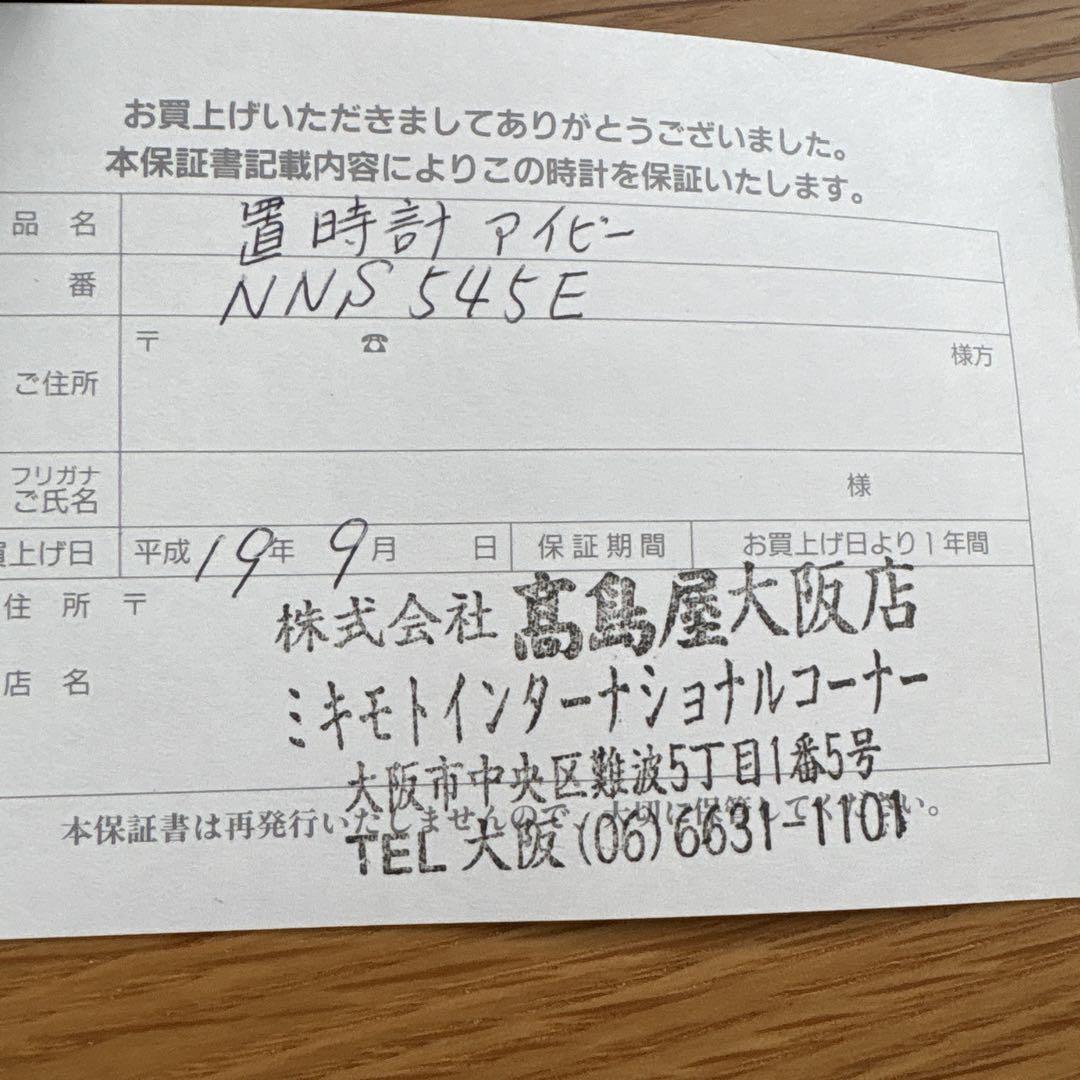 お買上げいただきましてありがとうございました。
本保証書記載内容によりこの時計を保証いたします。
品 名 置時計 アイビー
番 NNS 545E
ご住所 〒 ☎ 様方
フリガナ
ご氏名 様
買上げ日 平成19年 9月 日 保証期間 お買上げ日より1年間
住 所 〒
株式会社 髙島屋大阪店
店 名
ミキモトインターナショナルコーナー
大阪市中央区難波5丁目1番5号
本保証書は再発行いたしませんので、大切に保管してください。
TEL 大阪(06)6631-1101